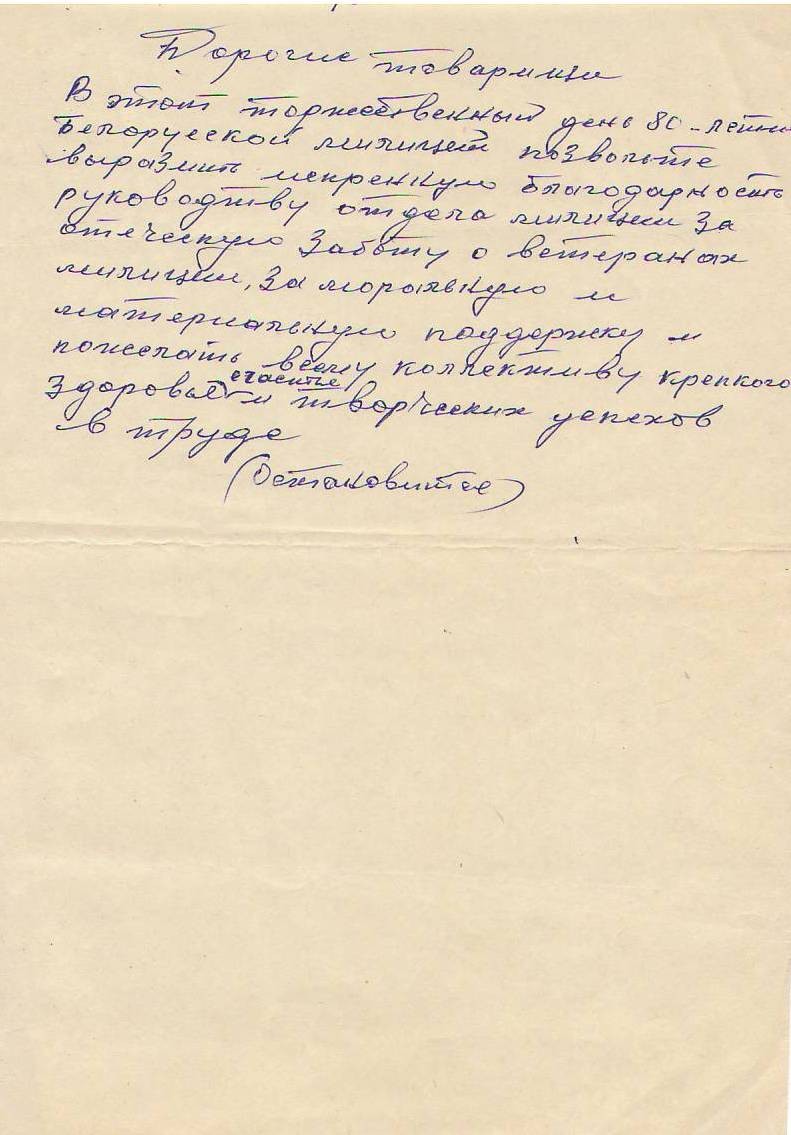 Дорогие товарищи
В этот торжественный день 80-летия
Белоруской милиции позвольте
выразить искренную благодарность
руководтву отдела милиции за
отеческую заботу о ветеранах
милиции, за моральную и
материальную поддержку и
пожелать всему коллективу крепкого
счастье
здоровье и творческих успехов
в труде
(Остановится)